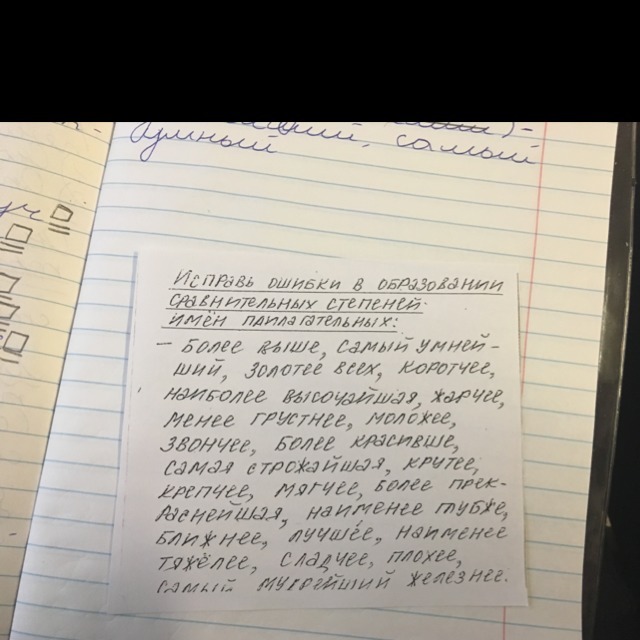 умный самый
Исправь ошибки в образовании
сравнительных степеней
имён плилагательных:
– Более выше, самый умней-
ший, золотее всех, коротчее,
наиболее высочайшая, жарчее,
менее грустнее, моложее,
звончее, более красивше,
самая строжайшая, крутее,
крепчее, мягчее, более прек-
раснейшая, наименее глубже,
ближнее, лучшее, наименее
тяжёлее, сладчее, плохее,
самый мудрейший железнее.